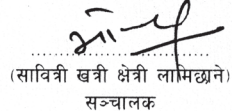 (सावित्री खत्री क्षेत्री लामिछाने)
सञ्चालक